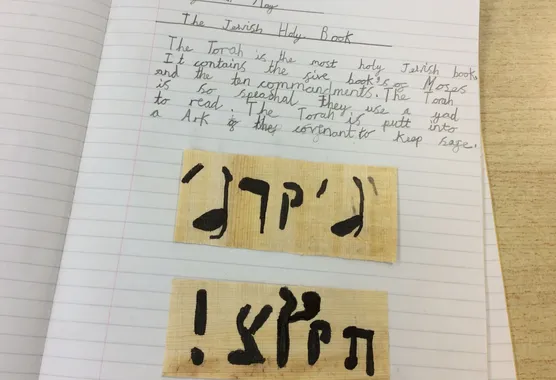 May
The Jewish Holy Book
The Torah is the most holy Jewish book.
It contains the five book's or Moses
and the ten commandments. The Torah
is so speachal they use a yad
to read. The Torah is putt into
a Ark of the covonant to keep sage.
ג'קרג'